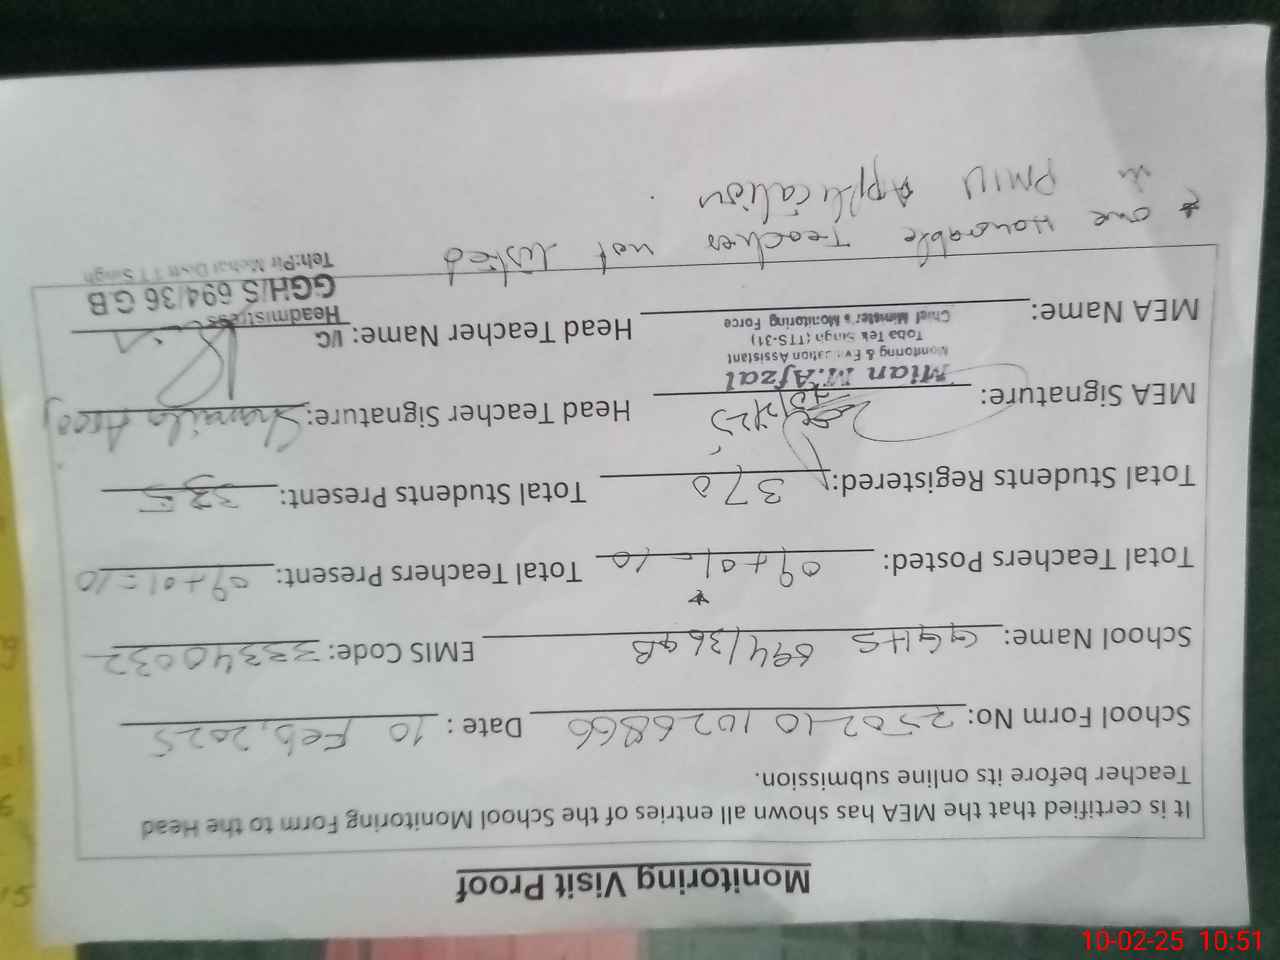 Monitoring Visit Proof
It is certified that the MEA has shown all entries of the School Monitoring Form to the Head
Teacher before its online submission.
School Form No: 2502101026866 Date : 10 Feb, 2025
School Name: GGHS 694/36 GB EMIS Code: 33340032
*
Total Teachers Posted: 09+01=10 Total Teachers Present: 09+01=10
Total Students Registered: 370 Total Students Present: 335
MEA Signature: Head Teacher Signature: Shamaila
Mian M.Afzal
Monitoring & Evaluation Assistant
Toba Tek Singh (TTS-31)
Chief Minister's Monitoring Force
MEA Name: Head Teacher Name: I/C
Headmistress
GGH/S 694/36 G.B
Teh:Pir Mahal Distt T.T Singh
* one Honorable Teacher not listed
in PMIU Application.
10-02-25 10:51